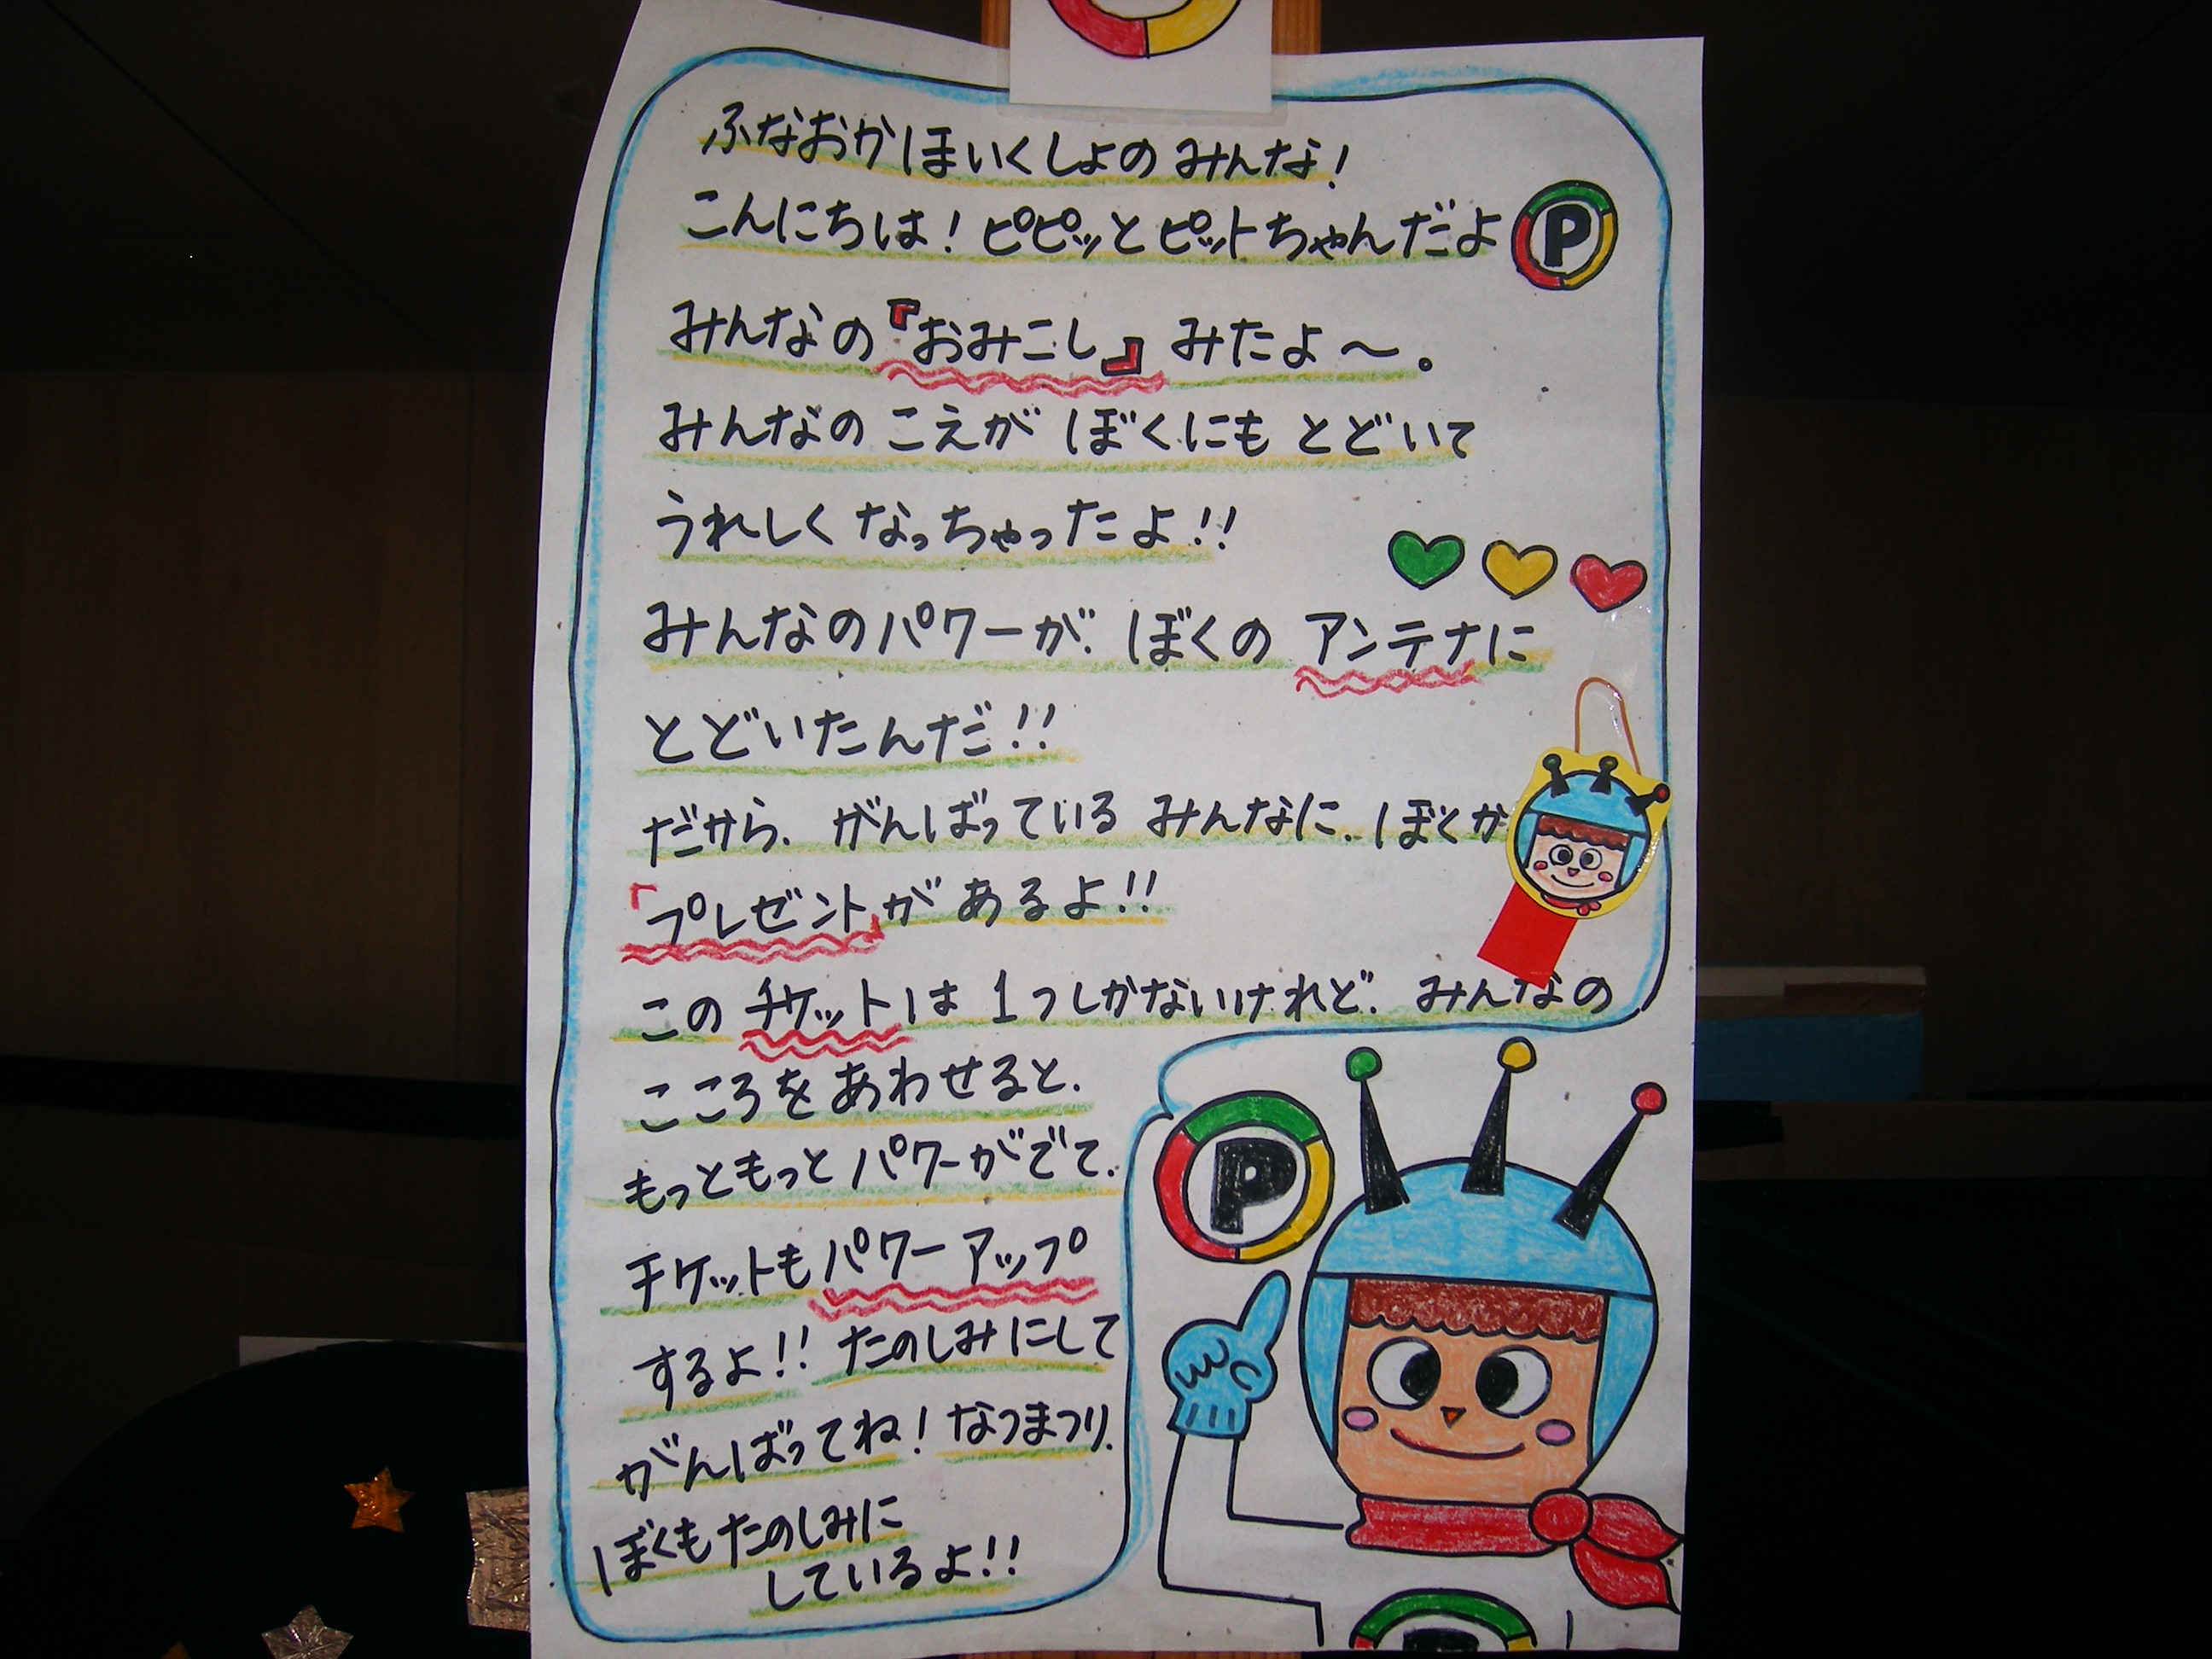 ふなおかほいくしょの みんな!
こんにちは! ピピッとピットちゃんだよ P
みんなの『おみこし』 みたよ〜。
みんなの こえが ぼくにも とどいて
うれしく なっちゃったよ!!
みんなのパワーが、ぼくの アンテナに
とどいたんだ!!
だから、がんばっている みんなに、ぼくか
「プレゼント」が あるよ!!
この チケットは 1つしかないけれど、みんなの
こころを あわせると、
もっともっと パワーがでて、
チケットも パワーアップ
するよ!! たのしみにして
がんばってね! なつまつり、
ぼくも たのしみに
しているよ!!
P